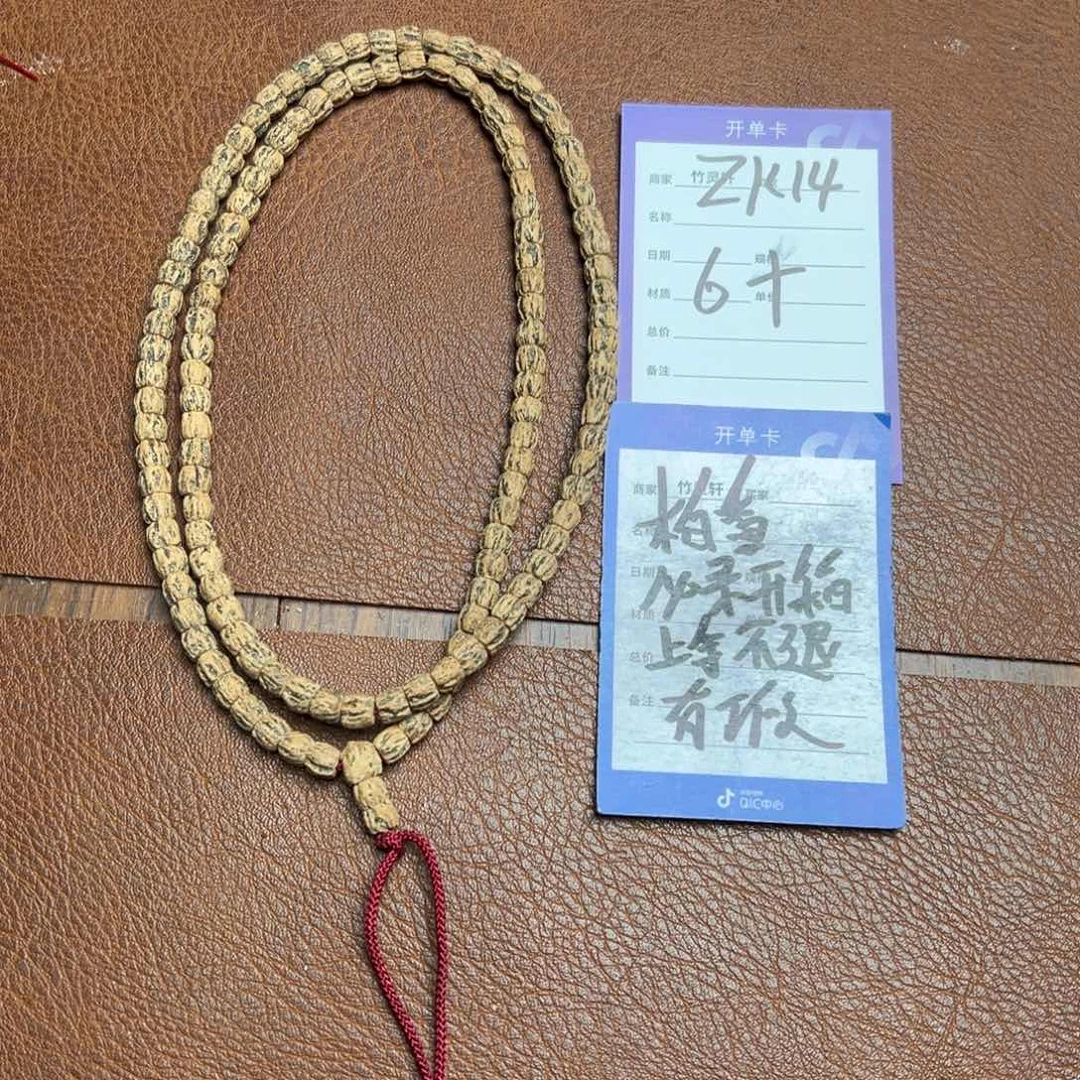 开单卡
商家 竹灵轩
ZK14
名称
日期
6十
材质 单价
总价
备注
开单卡
商家 竹灵轩 买家
柏壹
日期
必录开箱
材质
总价 上拿不退
备注 有修
QIC中心